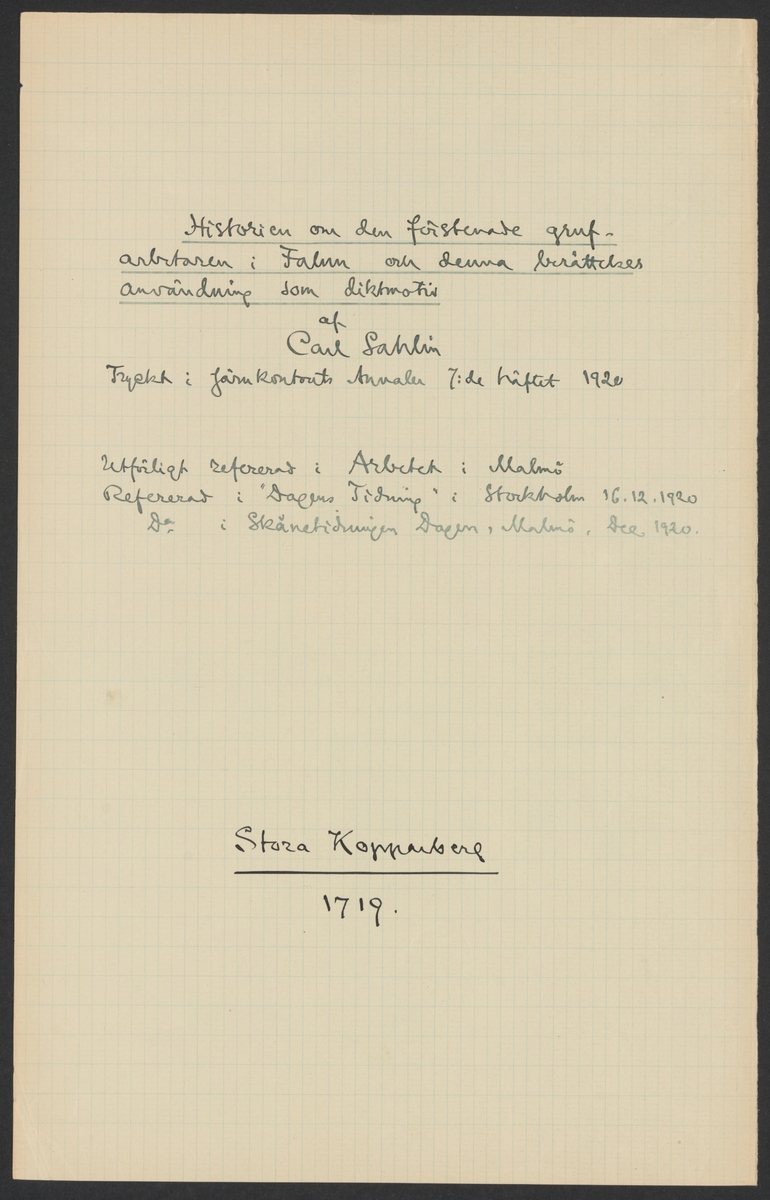 Historien om den förstenade gruf-
arbetaren i Falun och denna berättelses
användning som diktmotiv
af
Carl Sahlin
Tryckt i Järnkontorets Annaler 7:de häftet 1920
Utförligt refererad i Arbetet i Malmö
Refererad i "Dagens Tidning" i Stockholm 16.12.1920
Do i Skånetidningen Dagen, Malmö, Dec. 1920.
Stora Kopparberg
1719.